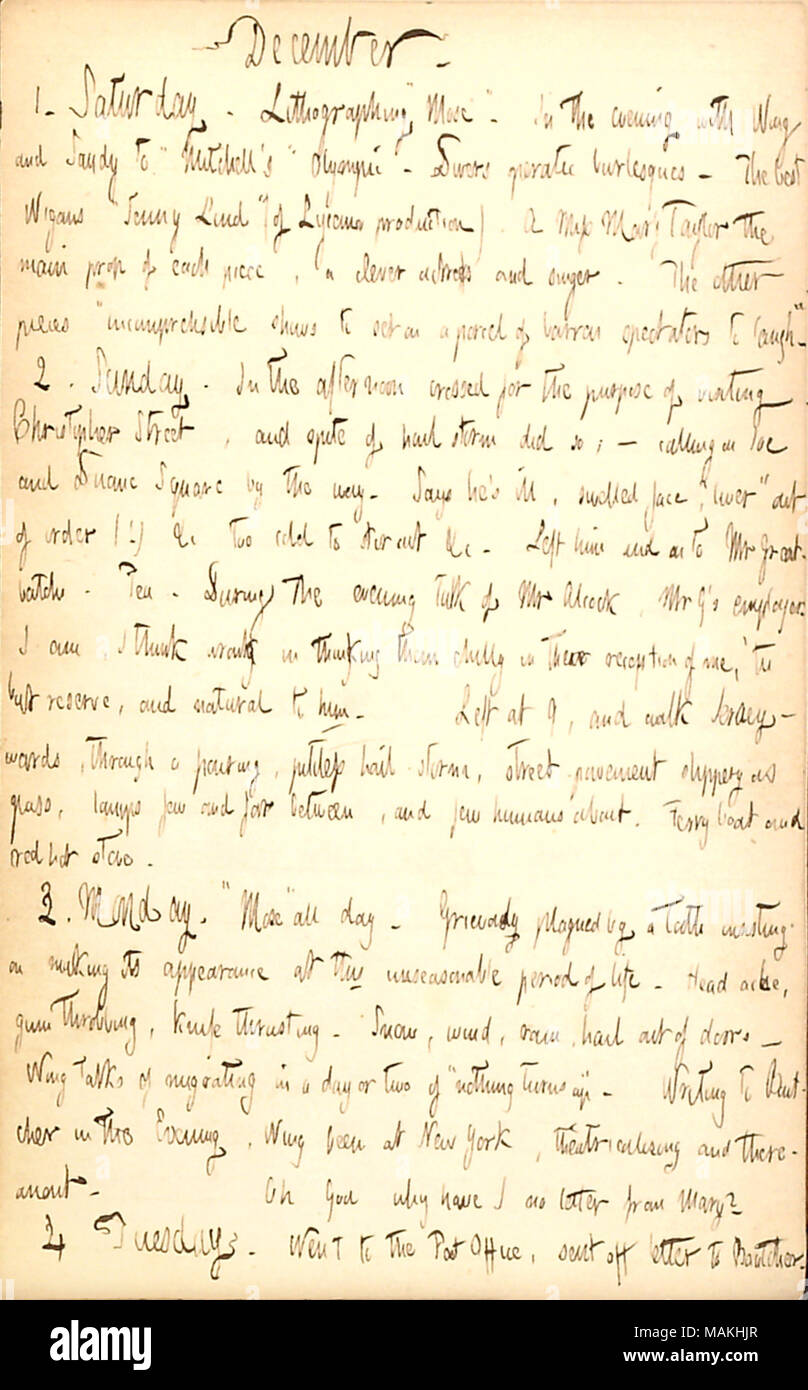 December.
1. Saturday. Lithographing "Mose". In the evening with Wing
and Sandy to "Mitchell's" Olympic". Divers operatic burlesques. The best
Wigans "Jenny Lind" (of Lyceum production). A Miss Mary Taylor the
main prop of each piece, a clever actress and singer. The other
pieces "incomprehensible shows to set on a parcel of barren spectators to laugh".
2. Sunday. In the afternoon crossed for the purpose of visiting
Christopher Street, and spite of hail storm did so; — calling on Joe
and Duane Square by the way. Says he's ill, swelled face, "liver" out
of order (!) &c too cold to stir out &c. Left him and on to Mr Great-
batchs. Tea. During the evening talk of Mr Alcock, Mr G's employer.
I am, I think wrong in thinking them chilly in their reception of me, 'tis
but reserve, and natural to him. Left at 9, and walk Jersey-
wards, through a pouring, pitiless hail storm, street pavement slippery as
glass, lamps few and far between, and few humans about. Ferry boat and
red hot stove.
3. Monday. "Mose" all day. Grievously plagued by a tooth insisting
on making its appearance at this unseasonable period of life. Head ache,
gum throbbing, knife thrusting. Snow, wind, rain, hail out of doors.
Wing talks of migrating in a day or two if "nothing turns up". Writing to Bout-
cher in the Evening, Wing been at New York, theatricalising and there-
anent. Oh God why have I no letter from Mary?
4 Tuesday. Went to the Post Office, sent off letter to Boutcher.
alamy
Image ID: MAKHJR
www.alamy.com